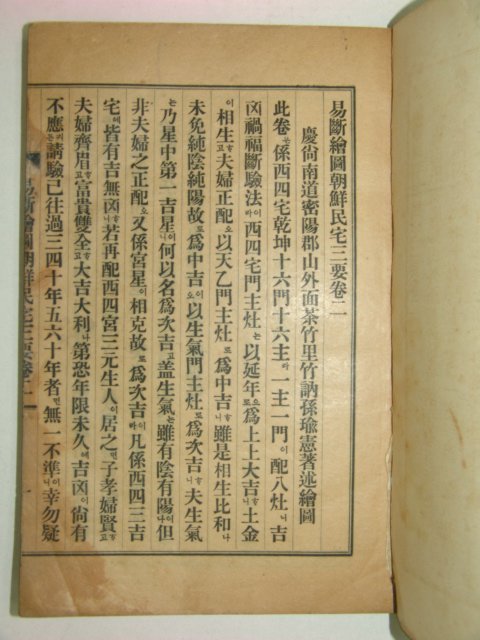 易斷繪圖朝鮮民宅三要卷二
慶尙南道密陽郡山外面茶竹里竹訥孫瑜憲著述繪圖
此卷는係西四宅乾坤十六門十六主라一主一門이配八灶니吉
凶禍福斷驗法이라西四宅門主灶는以延年으로爲上上大吉니土金
이相生고夫婦正配오以天乙門主灶로爲中吉니雖是相生比和나
未免純陰純陽故로爲中吉이오以生氣門主灶로爲次吉니夫生氣
는乃星中第一吉星이니何以名爲次吉고盖生氣는雖有陰有陽이나但
非夫婦之正配오又係宮星이相克故로爲次吉이라凡係西四三吉
宅에皆有吉無凶고若再配西四宮三元生人이居之면子孝婦賢고
夫婦齊眉고富貴雙全고大吉大利나第恐年限未久에吉凶이尙有
不應든請驗已往過三四十年五六十年者면無一不準이니幸勿疑
易斷繪圖朝鮮民宅三要卷二 一